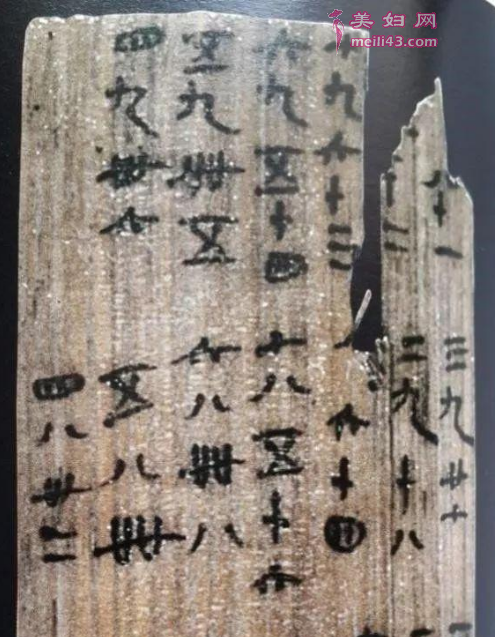 美妇网
meili43.com
八十一
十二
七九六十三
六九五十四
五九卌五
四九卅六
三九廿七
二九十八
八六十四
七八五十六
六八卌八
五八卌
四八卅二